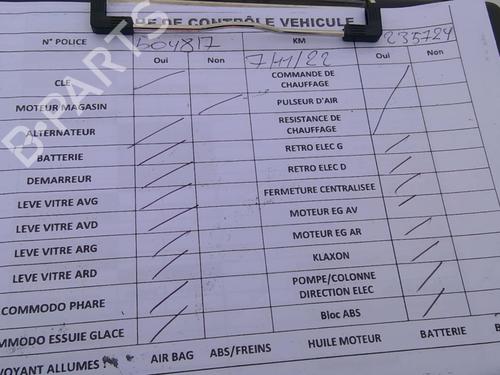 HE DE CONTRÔLE VEHICULE
N° POLICE 504817 KM 235724
Oui Non 7/11/22 Oui Non
CLE COMMANDE DE CHAUFFAGE
MOTEUR MAGASIN PULSEUR D'AIR
ALTERNATEUR RESISTANCE DE CHAUFFAGE
BATTERIE RETRO ELEC G
DEMARREUR RETRO ELEC D
LEVE VITRE AVG FERMETURE CENTRALISEE
LEVE VITRE AVD MOTEUR EG AV
LEVE VITRE ARG MOTEUR EG AR
LEVE VITRE ARD KLAXON
COMMODO PHARE POMPE/COLONNE DIRECTION ELEC
MMODO ESSUIE GLACE Bloc ABS
VOYANT ALLUMES : AIR BAG ABS/FREINS HUILE MOTEUR BATTERIE
B-PARTS